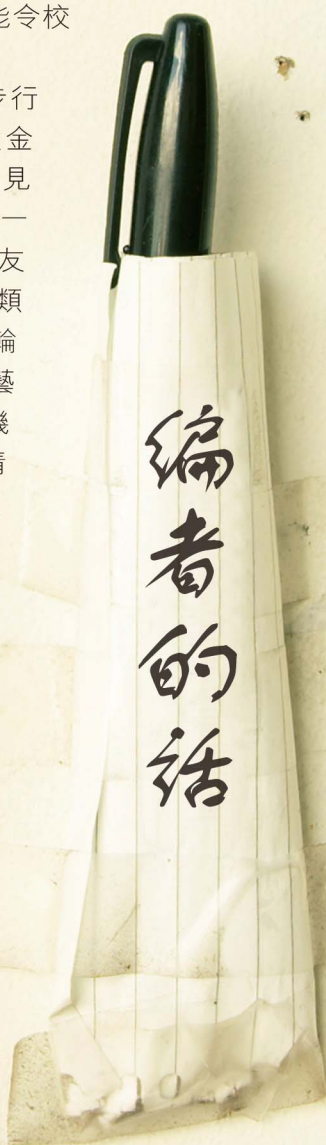 能令校
步行
金
見
一
友
類
論
藝
機
情
編者的話